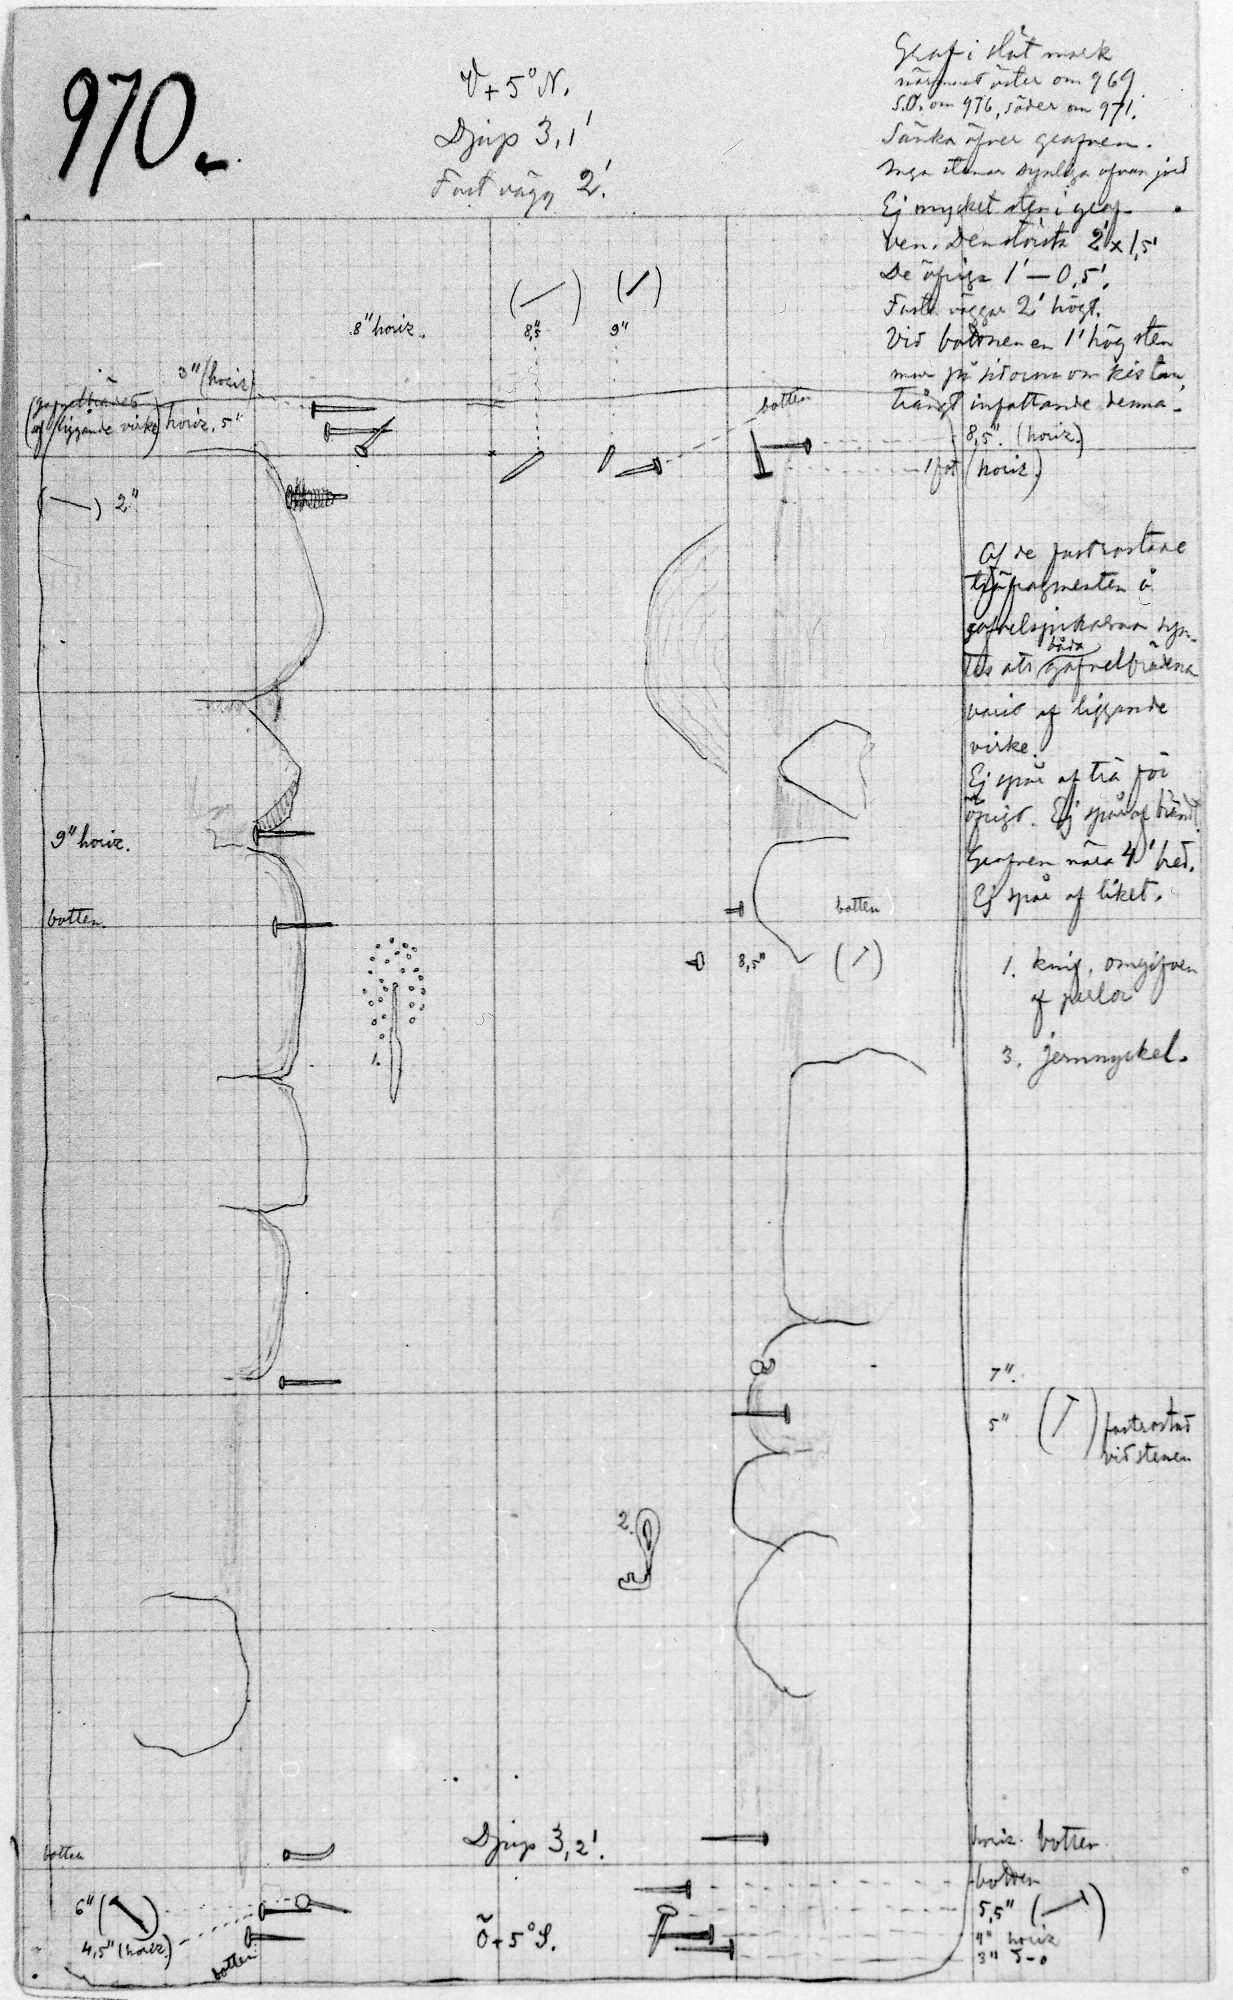 970.
V + 5° N.
Djup 3,1'
Fast vägg 2'.
Graf i slät mark
närmast öster om 969
S.O. om 976, söder om 971.
Sänka öfver grafven.
Inga stenar synliga ofvan jord
Ej mycket sten i graf-
ven. Den största 2' x 1,5'
De öfriga 1' — 0,5'.
Fasta väggar 2' högt.
Vid bottnen en 1' hög sten
mur på sidorna om kistan,
trångt infattande denna.
8" horiz.
8,5"
9"
3" (horiz)
(gafvelbrädet
af liggande virke) horiz. 5"
botten
8,5". (horiz.)
1 fot (horiz.)
2"
Af de fastrostade
träfragmenten å
gafvelspikarna syn-
tes att båda gafvelbrädena
varit af liggande
virke.
Ej spår af trä för
öfrigt. Ej spår af bränd.
Grafven nära 4' bred.
Ej spår af liket.
9" horiz.
botten.
botten
8,5"
1. knif, omgifven
af perlor
3. jernnyckel.
1.
7".
5"
fastrostad
vid stenen
2.
botten
Djup 3,2'.
horiz. botten
botten
6"
5,5"
4,5" (horiz.)
botten
Ö + 5° S.
4" horiz
3" S-o